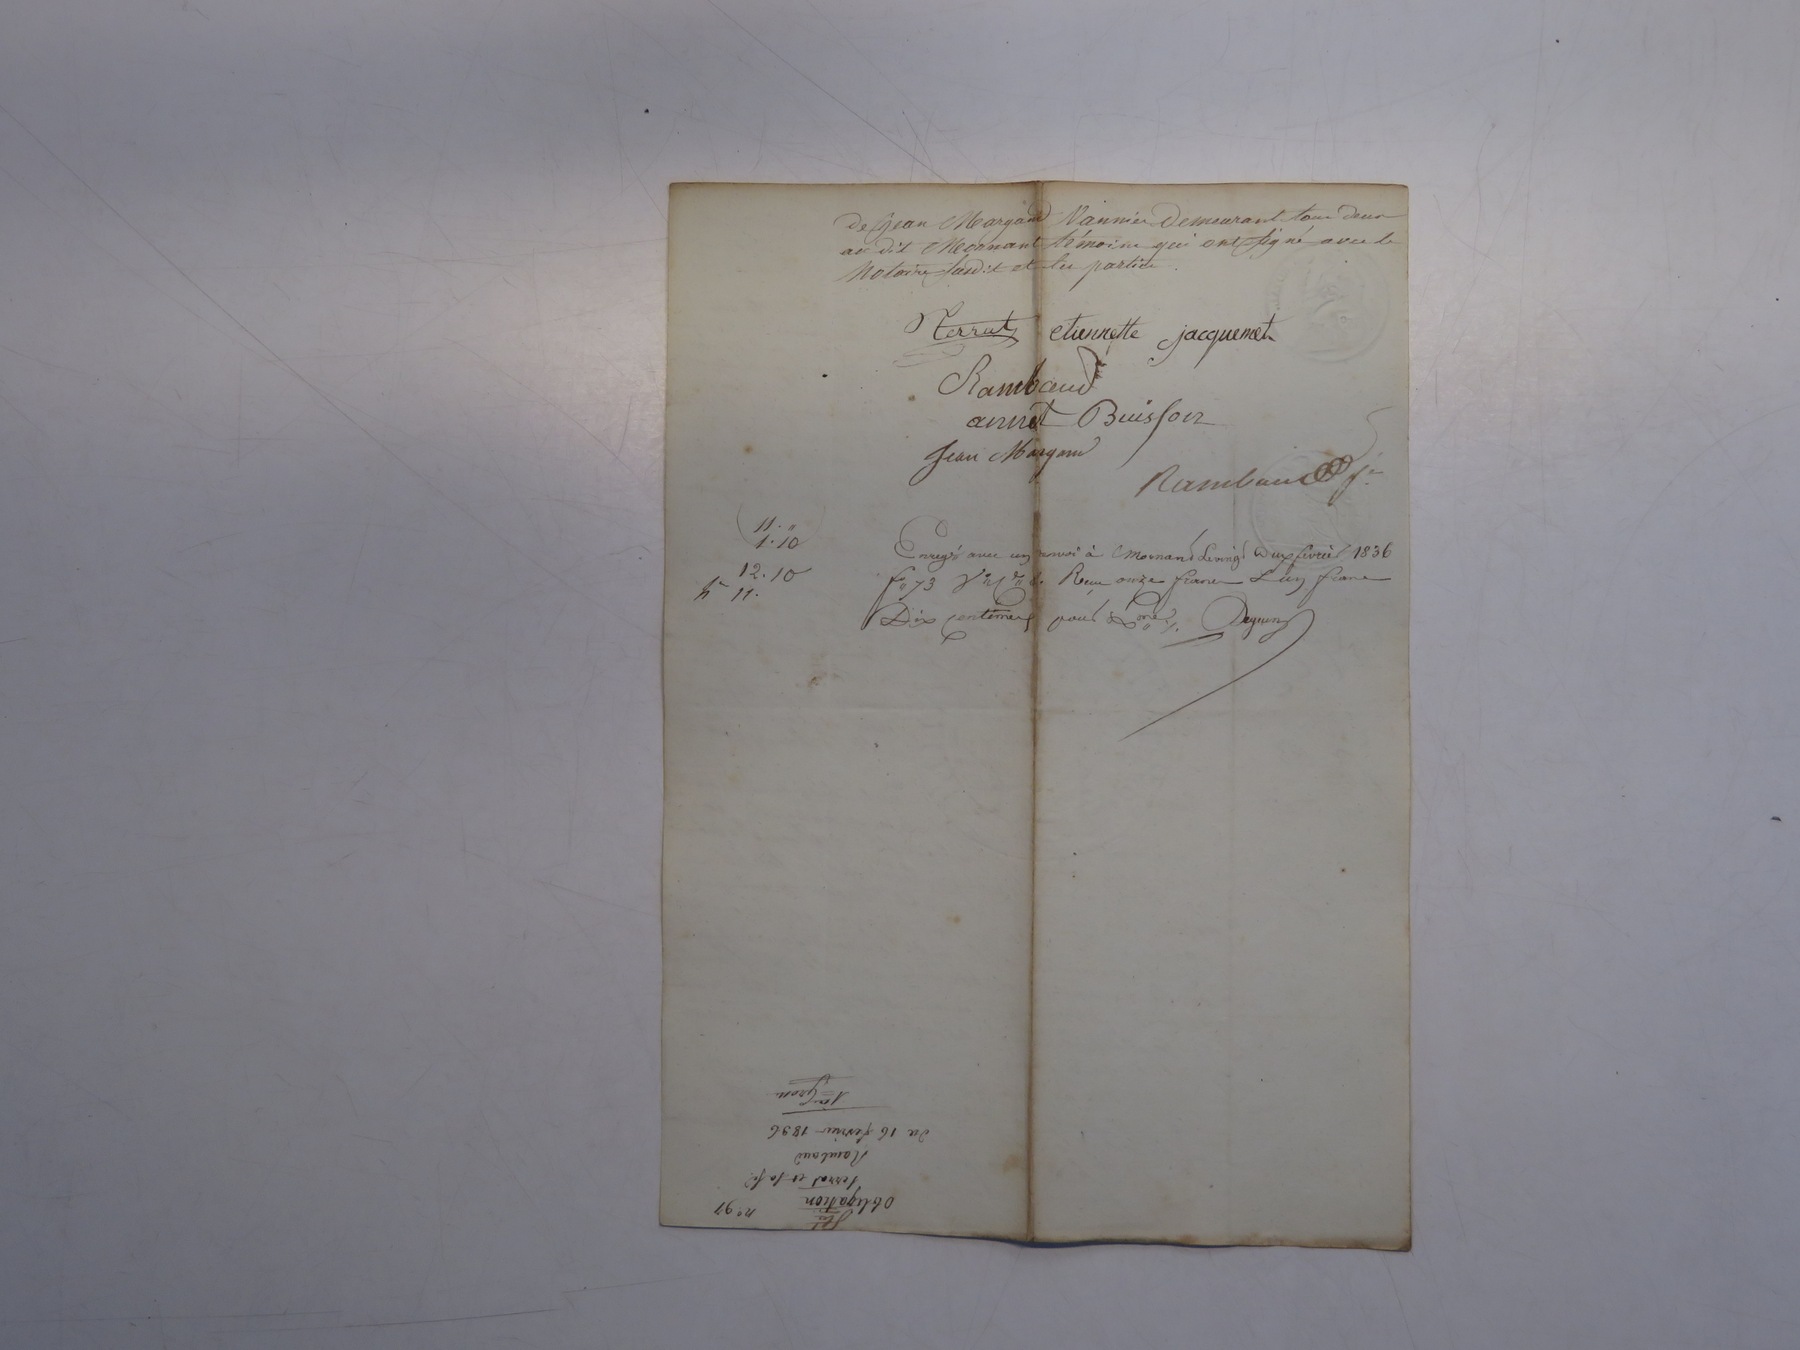 de Jean Margand Vannier Demeurant tous deux
au dit Mornant témoins qui ont signé avec le
Notaire susdit et les parties.
Terrat etiennette jacquemet
Rambaud
annet Buisson
Jean Margand
Rambaud
11. "
1. 10
12. 10
11.
Enregé avec un renvoi à Mornant le vingt deux février 1836
fo 73 Reçu onze francs & un franc
Dix centimes pour
no 97
Obligation
terrat et sa fe
Rambaud
du 16 février 1836